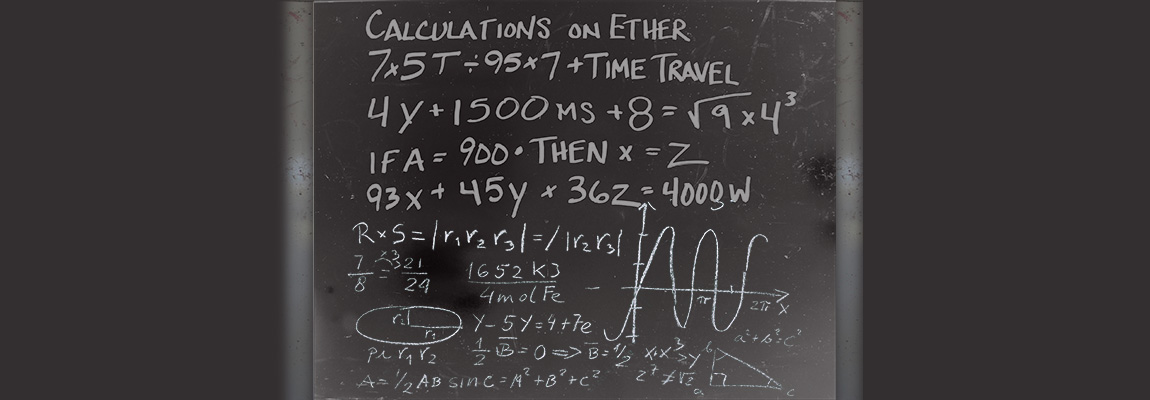 CALCULATIONS ON ETHER
7x5T÷95x7+TIME TRAVEL
4y+1500MS+8=√9x4³
IFA=900•THEN x=Z
93x+45y x 36Z=4000W
RxS=|r₁r₂r₃|=/|r₂r₃|
7/8 =x3 21/24
1652 kJ
4molFe
r₂
r₁
Y-5Y=4+7e
π
2π
x
a²+b²=c²
½ B=0=>B=½
x+x³>y
b
A=½ABsinC=A²+B²+C²
2⁷≠√2
a
c